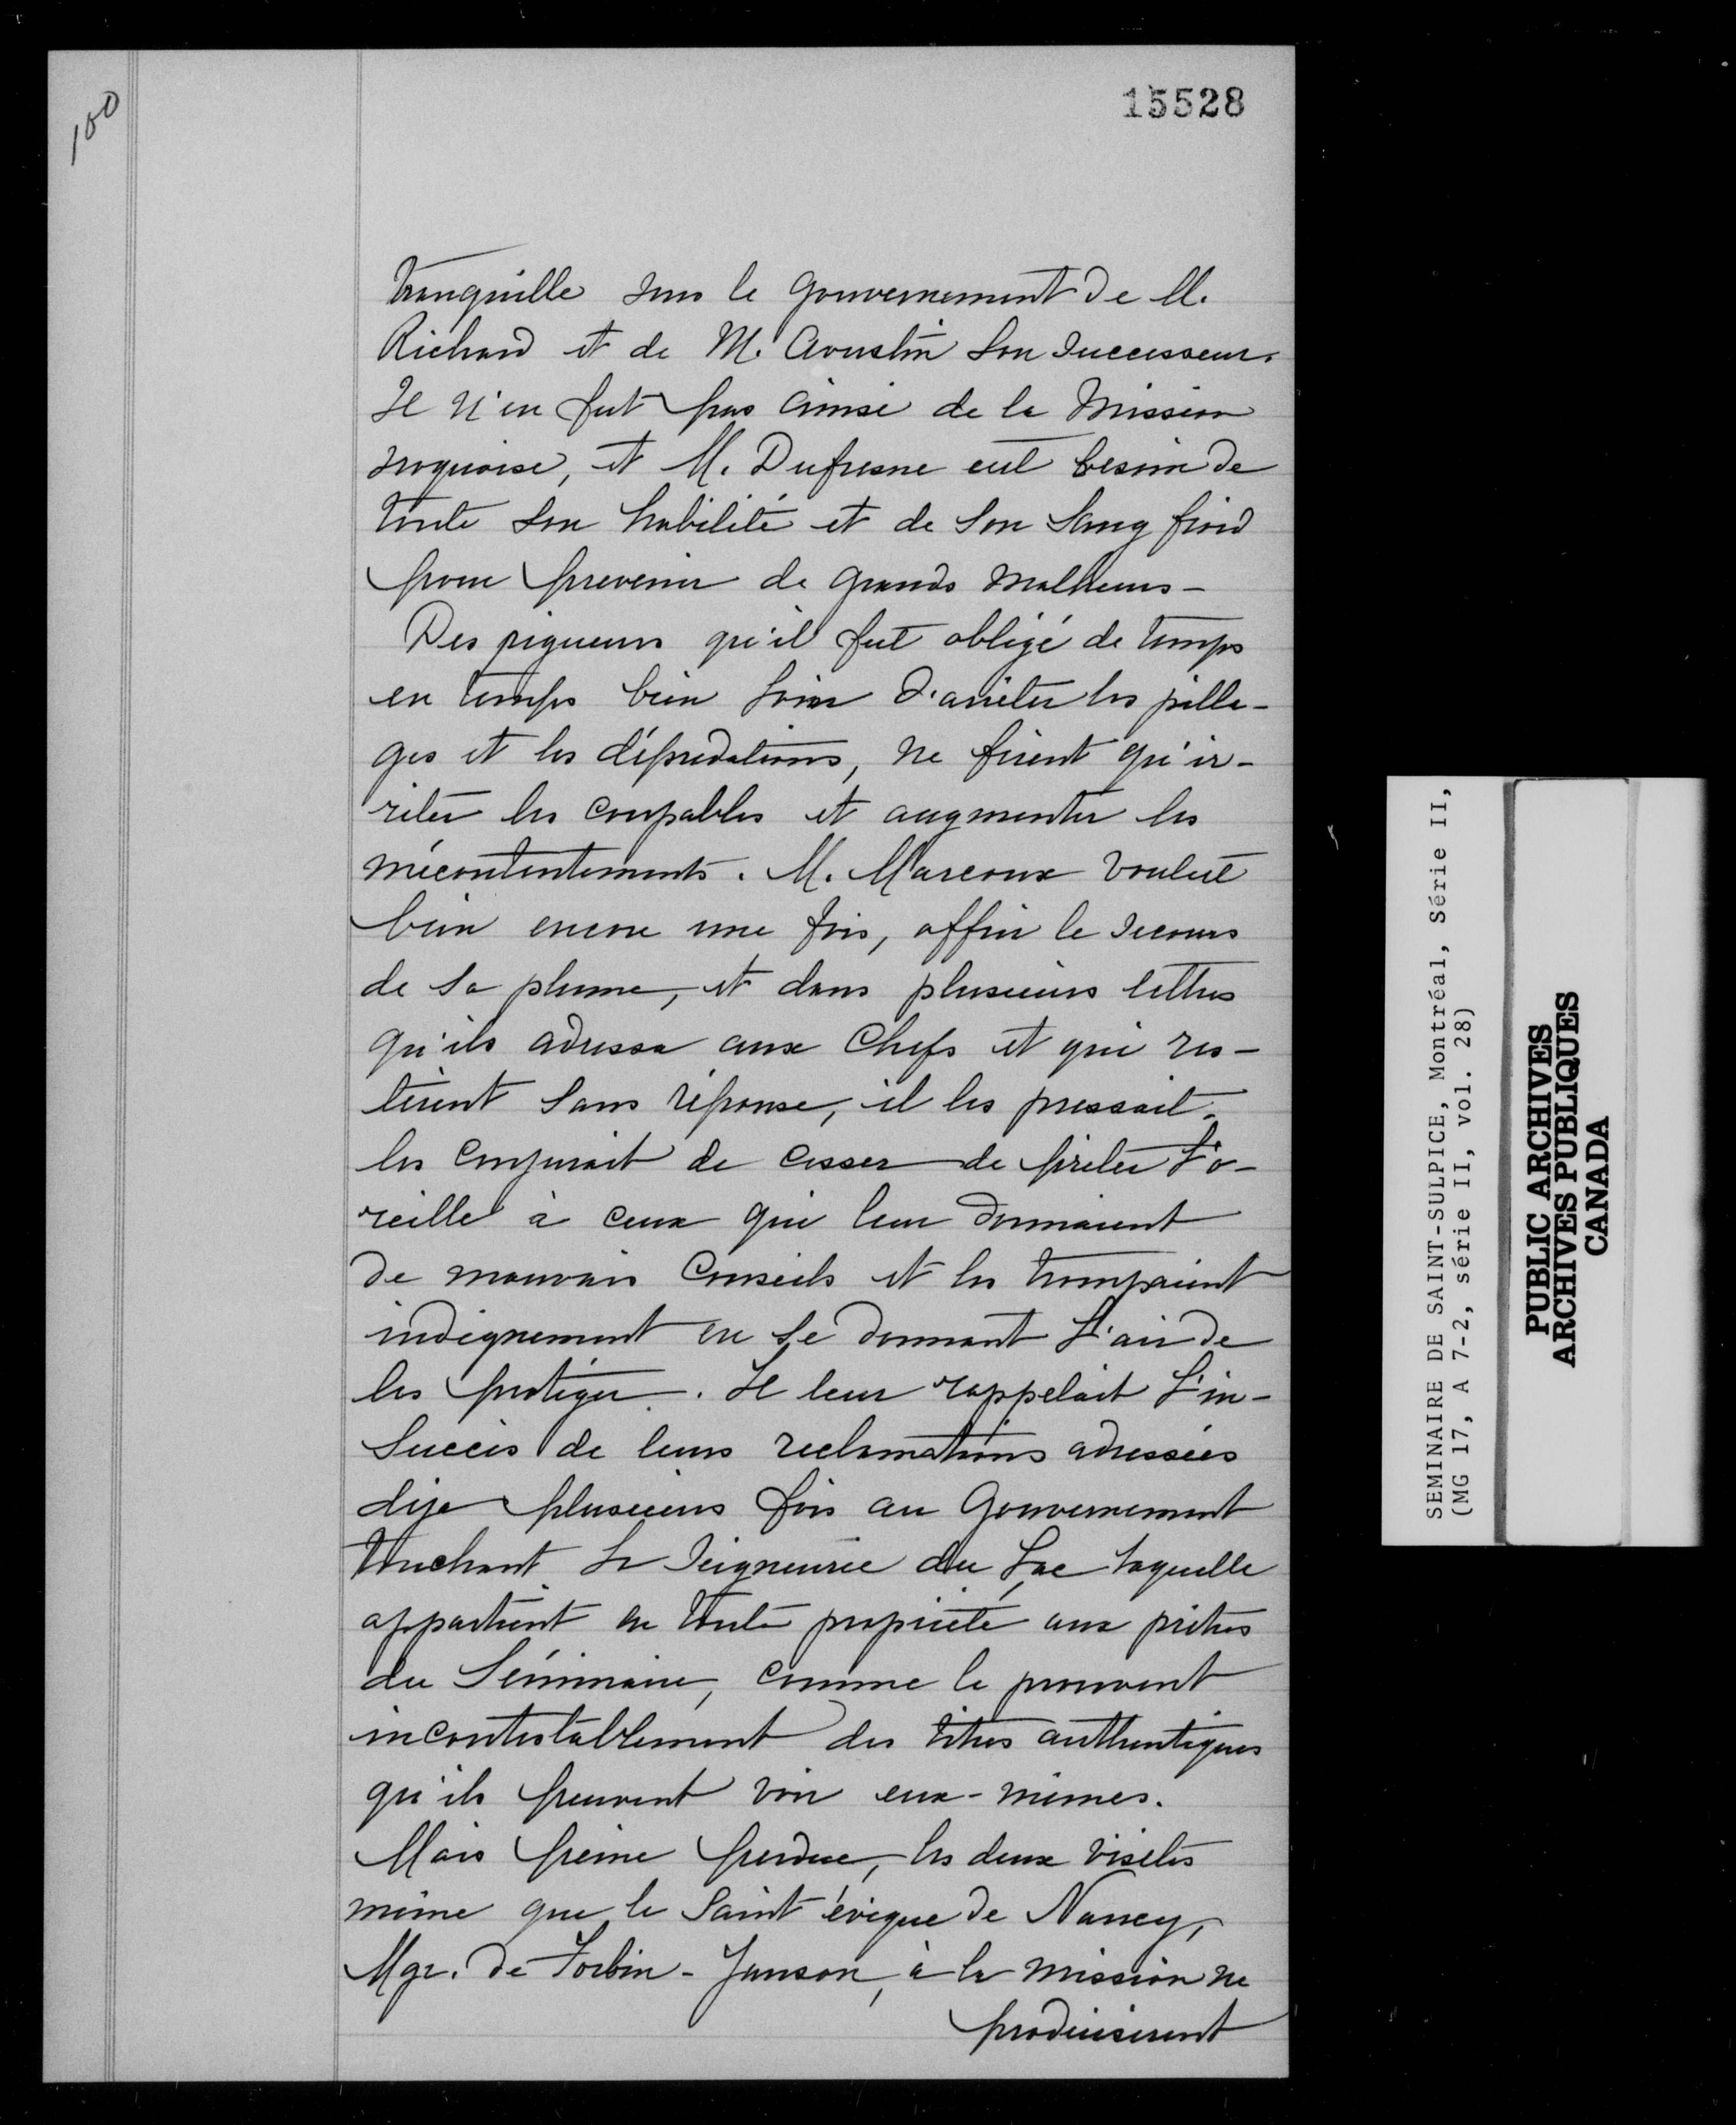 100
15528
tranquille sous le gouvernement de M.
Richard et de M. Aoustin son successeur.
Il n'en fut pas ainsi de la Mission
iroquoise, et M. Dufresne eut besoin de
toute son habilité et de son sang froid
pour prevenir de grands malheurs -
Des rigueurs qu'il fut obligé de temps
en temps bien loin d'arrêter les pilla-
ges et les déprédations, ne firent qu'ir-
riter les coupables et augmenter les
mécontentements. M. Marcoux voulut
bien encore une fois, offrir le secours
de sa plume, et dans plusieurs lettres
qu'ils adressa aux Chefs et qui res-
tèrent sans réponse, il les pressait,
les conjurait de cesser de prêter l'o-
reille à ceux qui leur donnaient
de mauvais Conseils et les trompaient
indignement en se donnant l'air de
les protéger. Il leur rappelait l'in-
succès de leurs reclamations adressées
déja plusieurs fois au Gouvernement
touchant la Seigneurie du Lac laquelle
appartient en toute propriété aux prêtres
du Séminaire, comme le prouvent
incontestablement des titres authentiques
qu'ils peuvent voir eux-mêmes.
Mais peine perdue, les deux visites
même que le Saint évêque de Nancy,
Mgr. de Forbin-Janson, à la mission ne
produisirent
SEMINAIRE DE SAINT-SULPICE, Montréal, Série II,
(MG 17, A 7-2, série II, vol. 28)
PUBLIC ARCHIVES
ARCHIVES PUBLIQUES
CANADA